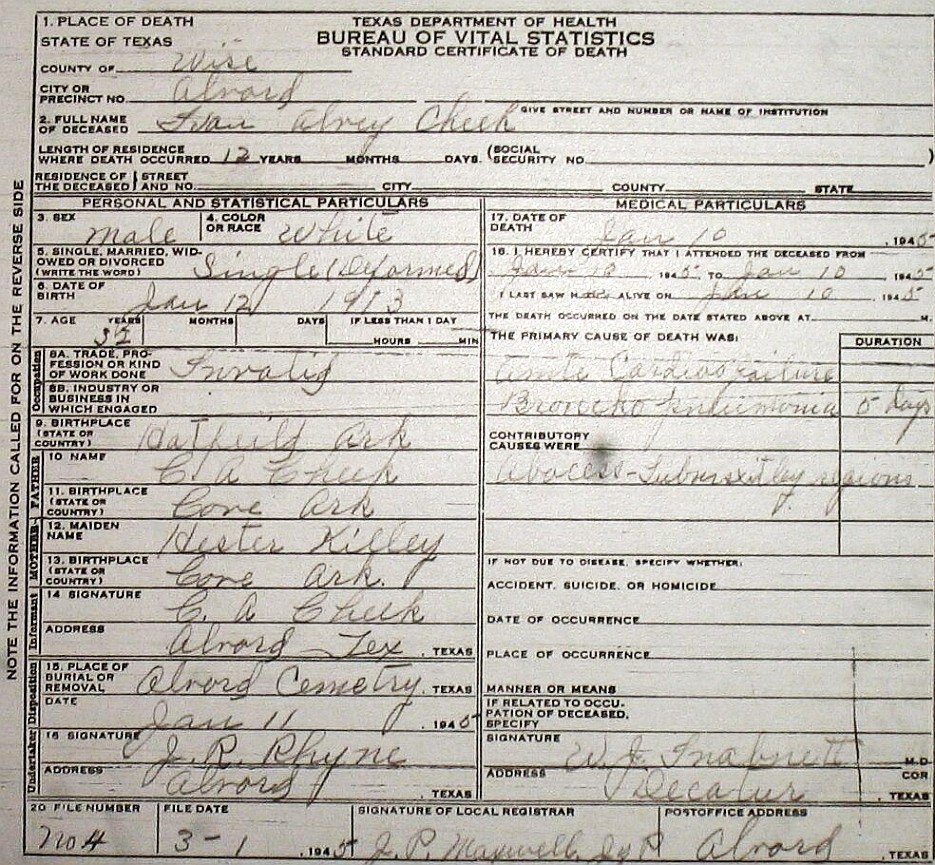 1. PLACE OF DEATH
STATE OF TEXAS
TEXAS DEPARTMENT OF HEALTH
BUREAU OF VITAL STATISTICS
STANDARD CERTIFICATE OF DEATH
COUNTY OF Wise
CITY OR PRECINCT NO. Alvord
GIVE STREET AND NUMBER OR NAME OF INSTITUTION
2. FULL NAME OF DECEASED Ivan Alvey Cheek
LENGTH OF RESIDENCE WHERE DEATH OCCURRED 12 YEARS MONTHS DAYS. (SOCIAL SECURITY NO. )
RESIDENCE OF THE DECEASED STREET AND NO. CITY COUNTY STATE
NOTE THE INFORMATION CALLED FOR ON THE REVERSE SIDE
PERSONAL AND STATISTICAL PARTICULARS
3. SEX male 4. COLOR OR RACE White
5. SINGLE, MARRIED, WIDOWED OR DIVORCED (WRITE THE WORD) Single (Deformed)
6. DATE OF BIRTH Jan 12 1913
7. AGE YEARS MONTHS DAYS IF LESS THAN 1 DAY
HOURS MIN
Occupation
8A. TRADE, PROFESSION OR KIND OF WORK DONE Invalid
8B. INDUSTRY OR BUSINESS IN WHICH ENGAGED
9. BIRTHPLACE (STATE OR COUNTRY) Hatfield Ark
FATHER
10 NAME C. A Cheek
11. BIRTHPLACE (STATE OR COUNTRY) Cove Ark
MOTHER
12. MAIDEN NAME Hester Killey
13. BIRTHPLACE (STATE OR COUNTRY) Cove Ark.
Informant
14 SIGNATURE C. A Cheek
ADDRESS Alvord Tex , TEXAS
Disposition
15. PLACE OF BURIAL OR REMOVAL Alvord Cemetry , TEXAS
DATE Jan 11 , 1945
Undertaker
16 SIGNATURE J. R. Rhyne
ADDRESS Alvord , TEXAS
MEDICAL PARTICULARS
17. DATE OF DEATH Jan 10 , 1945
18. I HEREBY CERTIFY THAT I ATTENDED THE DECEASED FROM
Jan 10 1945 TO Jan 10 1945
I LAST SAW H ALIVE ON Jan 10 , 1945
THE DEATH OCCURRED ON THE DATE STATED ABOVE AT M.
THE PRIMARY CAUSE OF DEATH WAS: DURATION
Acute Cardiac Failure
Broncho pneumonia 5 days
CONTRIBUTORY CAUSES WERE
Abocess-
IF NOT DUE TO DISEASE, SPECIFY WHETHER:
ACCIDENT, SUICIDE, OR HOMICIDE
DATE OF OCCURRENCE
PLACE OF OCCURRENCE
MANNER OR MEANS
IF RELATED TO OCCUPATION OF DECEASED, SPECIFY
SIGNATURE W. J. Inabnett M.D
COR
ADDRESS Decatur , TEXAS
20 FILE NUMBER no 4
FILE DATE 3-1 , 1945
SIGNATURE OF LOCAL REGISTRAR J. P. Maxwell
POSTOFFICE ADDRESS Alvord , TEXAS